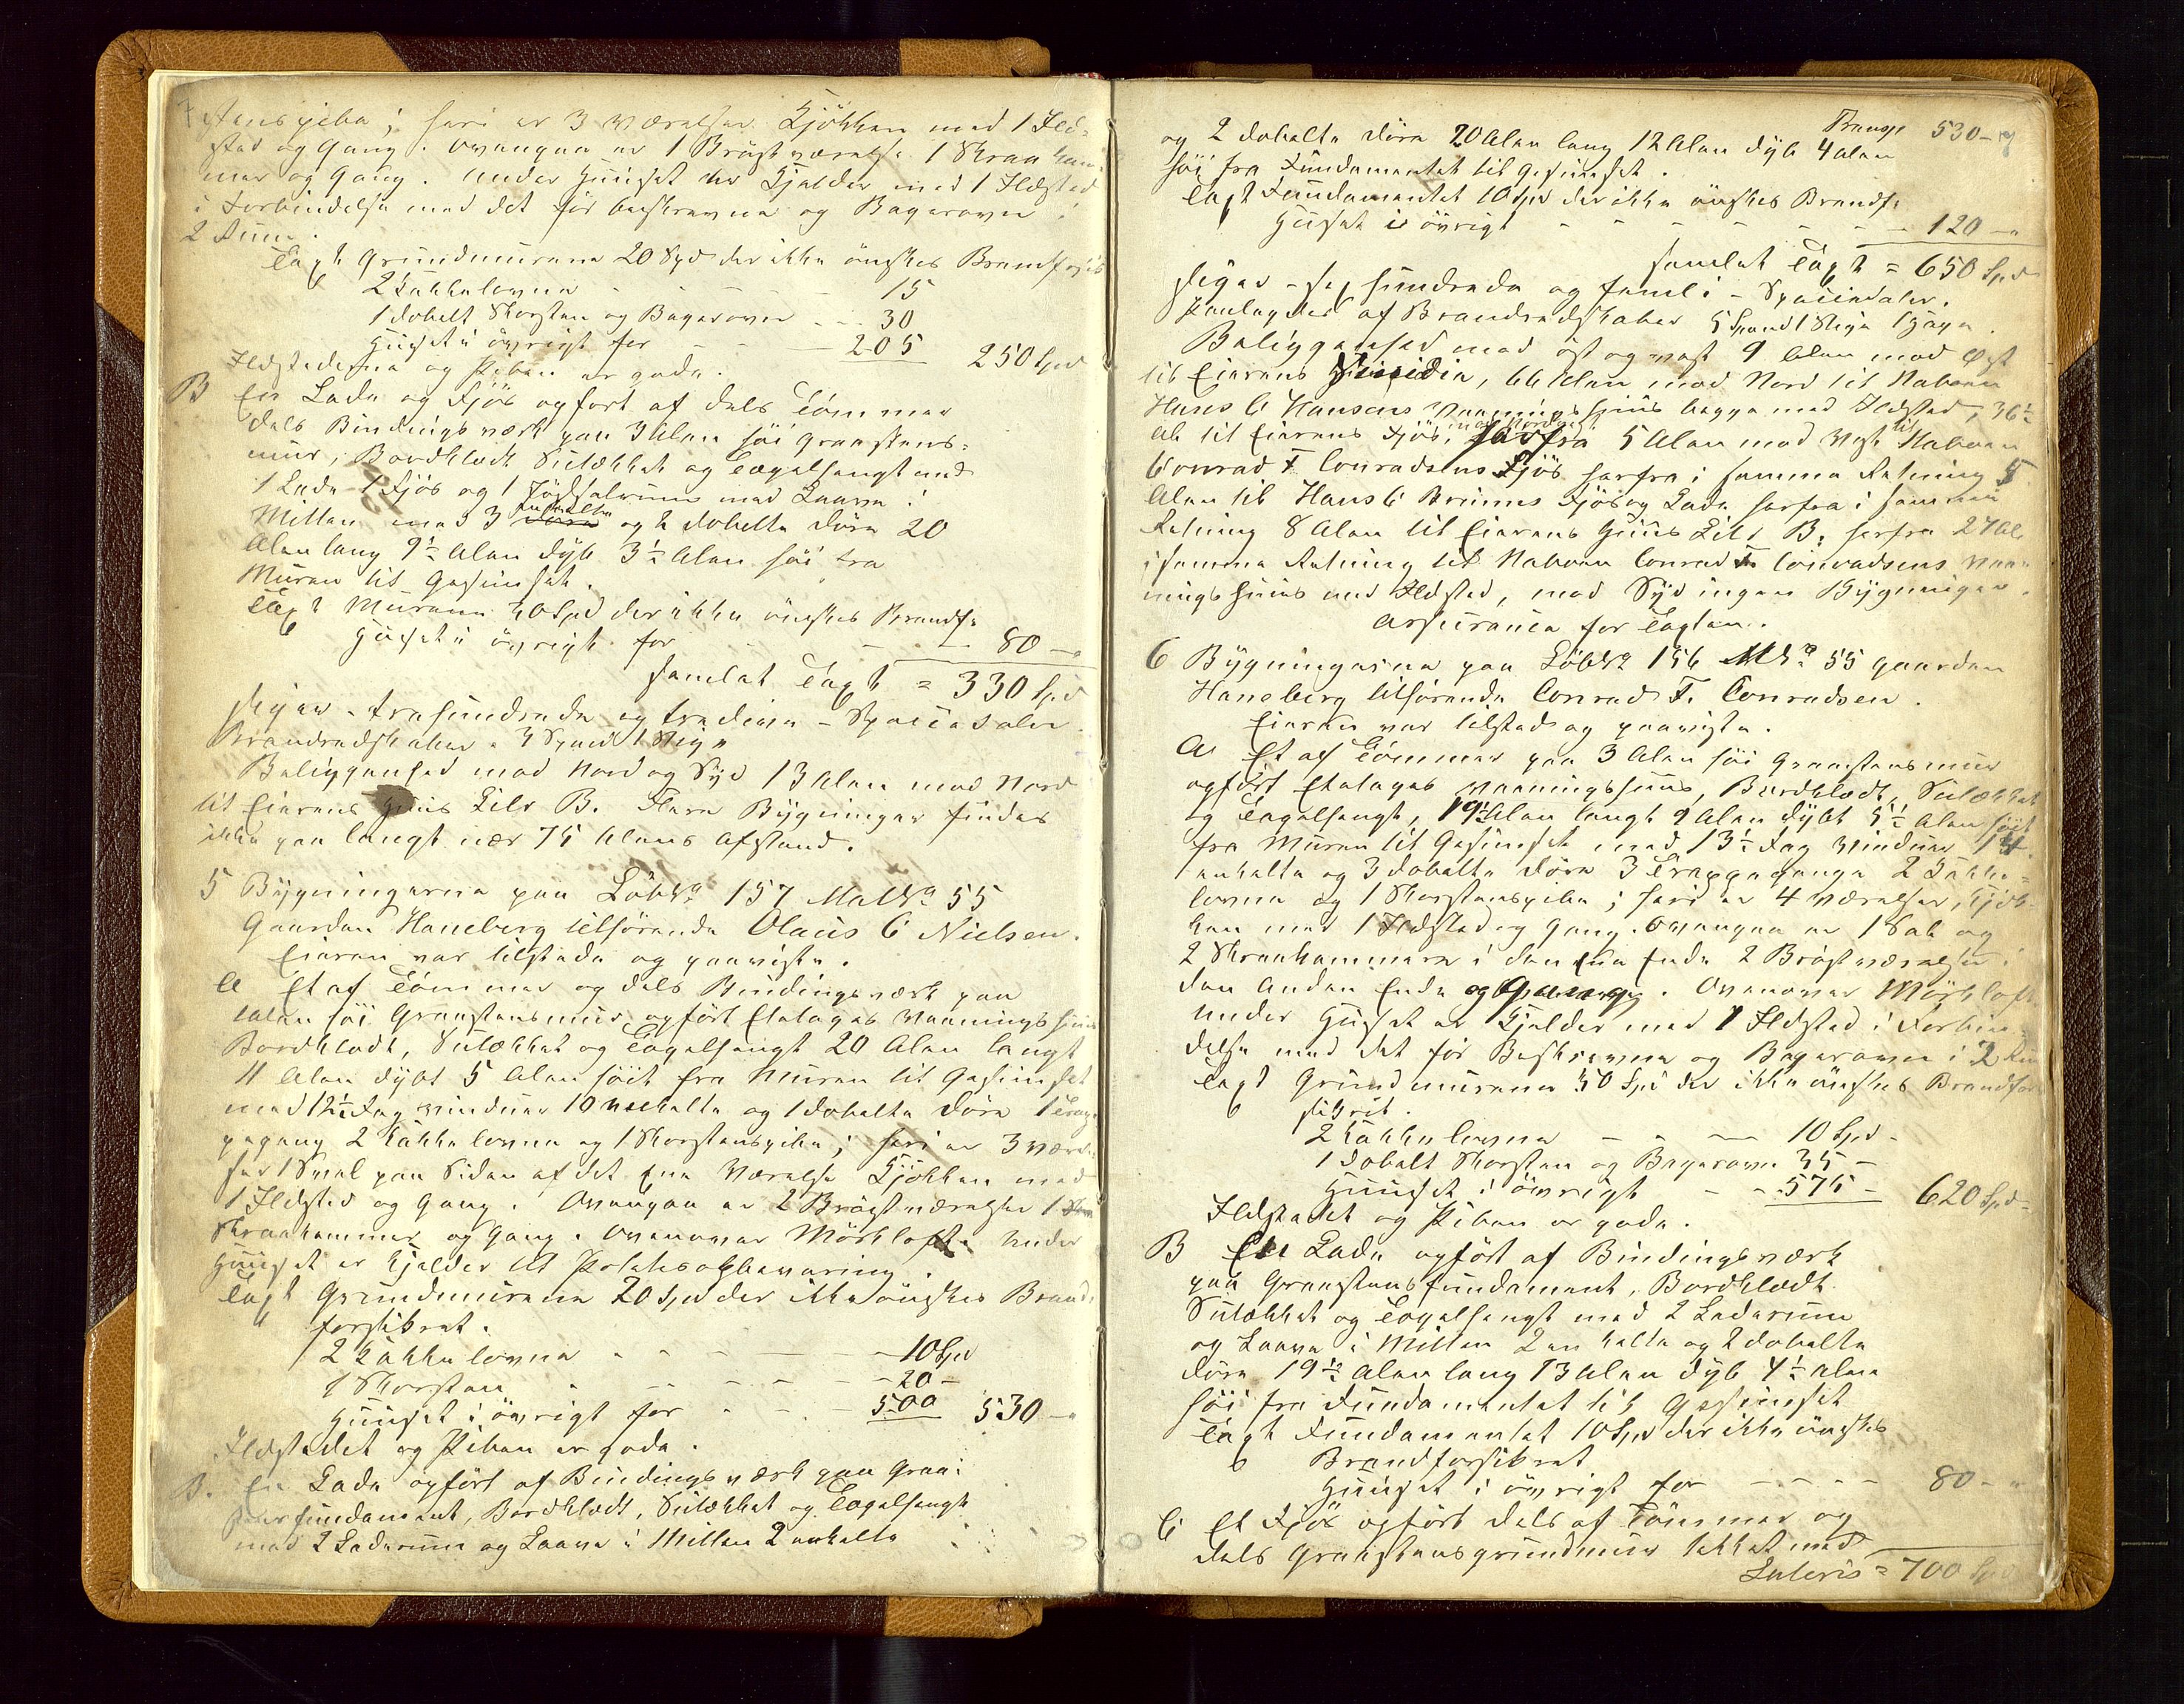 stenspibe; heri er 3 Værelser Kjökken med 1 Ild-
sted og Gang. Ovenpaa er 1 Bröstværelse 1 Skraakam-
mer og Gang. Under Huuset er Kjelder med 1 Ildsted
i Forbindelse med det för beskrevne og Bagerovn i
2 Rum.
Taxt Grundmurene 20 Spd der ikke önskes Brandfors
2 Kakkelovne - - - - 15
1 dobelt Skorsten og Bagerovn - - 30
Huuset i övrigt for - - - 205 250 Spd
Ildstederne og Piben er gode.
B En Lade og Fjös opfört af dels Tömmer
dels Bindingsværk paa 3 Alen höi Graastens-
mur, Bordklædt Sutækket og Tegelhengt med
1 Lade 1 Fjös og 1 med Laave i
Mitten med 3 enkelte og 2 dobelte Döre 20
Alen lang 9½ Alen dyb 3½ Alen höi fra
Muren til Gesimset.
Taxt Murene 20 Spd der ikke önskes Brandfs
Huuset i övrigt for - - 80 -"
samlet Taxt = 330 Spd
siger - trehundrede og tredive - Speciesdaler
Brandredskaber 3 Spand 1 Stige
Beliggenhed mod Nord og Syd 13 Alen mod Nord
til Eierens Huus Litr B. Flere Bygninger findes
ikke paa langt nær 75 Alens Afstand.
5 Bygningerne paa Löb No 157 Mat No 55
Gaarden Haneberg tilhörende Olaus C Nielsen.
Eieren var tilstede og paaviste.
A Et af Tömmer og dels Bindingsværk paa
Alen höi Graastensmur opfört Etetages Vaaningshuus
Bordklædt, Sutækket og Tegelhengt 20 Alen langt
11 Alen dybt 5 Alen höit fra Muren til Gesimset
med 12½ Fag Vinduer 10 enkelte og 1 dobelt Döre 1 Trap-
pegang 2 Kakkelovne og 1 Skorstenspibe; heri er 3 Værel-
ser 1 Sval paa Siden af det ene Værelse Kjökken med
1 Ildsted og Gang. Ovenpaa er 2 Bröstværelser 1
Skraakammer og Gang. Ovenover Mörkloft. Under
Huuset er Kjelder til Potetesopbevaring.
Taxt Grundmurene 20 Spd der ikke önskes Brand-
forsikret.
2 Kakkelovne - - - - 10 Spd
1 Skorsten - - - - 20 -
Huuset i övrigt for - - - 500 530 -"
Ildstedet og Piben er gode.
B. En Lade opfört af Bindingsværk paa Graa-
stensfundament, Bordklædt, Sutækket og Tegelhengt
med 2 Laderum og Laave i Mitten 2 enkelte
Transp 530 -"
og 2 dobelte Döre 20 Alen lang 12 Alen dyb 4 Alen
höi fra Fundamentet til Gesimset.
Taxt Fundamentet 10 Spd der ikke önskes Brandfs
Huset i övrigt - - - - - 120 -"
samlet Taxt = 650 Spd
siger - sexhundrede og femti - Speciedaler.
Paalagdes af Brandredskaber 5 Spand 1 Stige 1 Hage.
Beliggenhed mod öst og vest 9 Alen mod Öst
til Eierens , 66 Alen mod Nord til Naboen
Hans C Hansens Vaaningshuus begge med Ildsted, 36½
Al til Eierens Fjös, mod Nordvest herfra 5 Alen mod Vest til Naboen
Conrad T. Conradsens Fjös herfra i samme Retning 5
Alen til Hans C Bruuns Fjös og Lade herfra i samme
Retning 8 Alen til Eierens Huus Litr B. herfra 27 Al
i samme Retning til Naboen Conrad T. Conradsens Vaa-
ningshuus med Ildsted, mod Syd ingen Bygninger.
Assurance for Taxten.
6 Bygningerne paa Löb No 156 M No 55 Gaarden
Haneberg tilhörende Conrad T. Conradsen.
Eieren var tilstede og paaviste.
A Et af Tömmer paa 3 Alen höi Graastensmur
opfört Etetages Vaaningshuus, Bordklædt, Sutækket
og Tegelhengt, 19½ Alen langt 9 Alen dybt 5½ Alen höit
fra Muren til Gesimset med 13½ Fag Vinduer 14
enkelte og 3 dobelte Döre 3 Trappegange 2 Kakke-
lovne og 1 Skorstenspibe; heri er 4 Værelser, Kjök-
ken med 1 Ildsted og Gang. Ovenpaa er 1 Sal og
2 Skraakammere i den ene Ende 2 Bröstværelser i
den Anden Ende og Gang. Ovenover Mörkloft
Under Huset er Kjelder med 1 Ildsted i Forbin-
delse med det för Beskrevne og Bagerovn i 2 Rum
Taxt Grundmurene 50 Spd der ikke önskes Brandfor-
sikret.
2 Kakkelovne - - - 10 Spd -
1 dobelt Skorsten og Bagerovn 35 -
Huuset i övrigt - - 575 - 620 Spd -
Ildstedet og Piben er gode.
B En Lade opfört af Bindingsværk
paa Graastensfundament, Bordklædt
Sutækket og Tegelhengt med 2 Laderum
og Laave i Mitten 2 enkelte og 2 dobelte
Döre 19½ Alen lang 13 Alen dyb 4½ Alen
höi fra Fundamentet til Gesimset
Taxt Fundamentet 10 Spd der ikke önskes
Brandforsikret
Huuset i övrigt for - - - - 80 - "
C Et Fjös opfört dels af Tömmer og
dels Graastensgrundmur tækket med
Lateris = 700 Spd